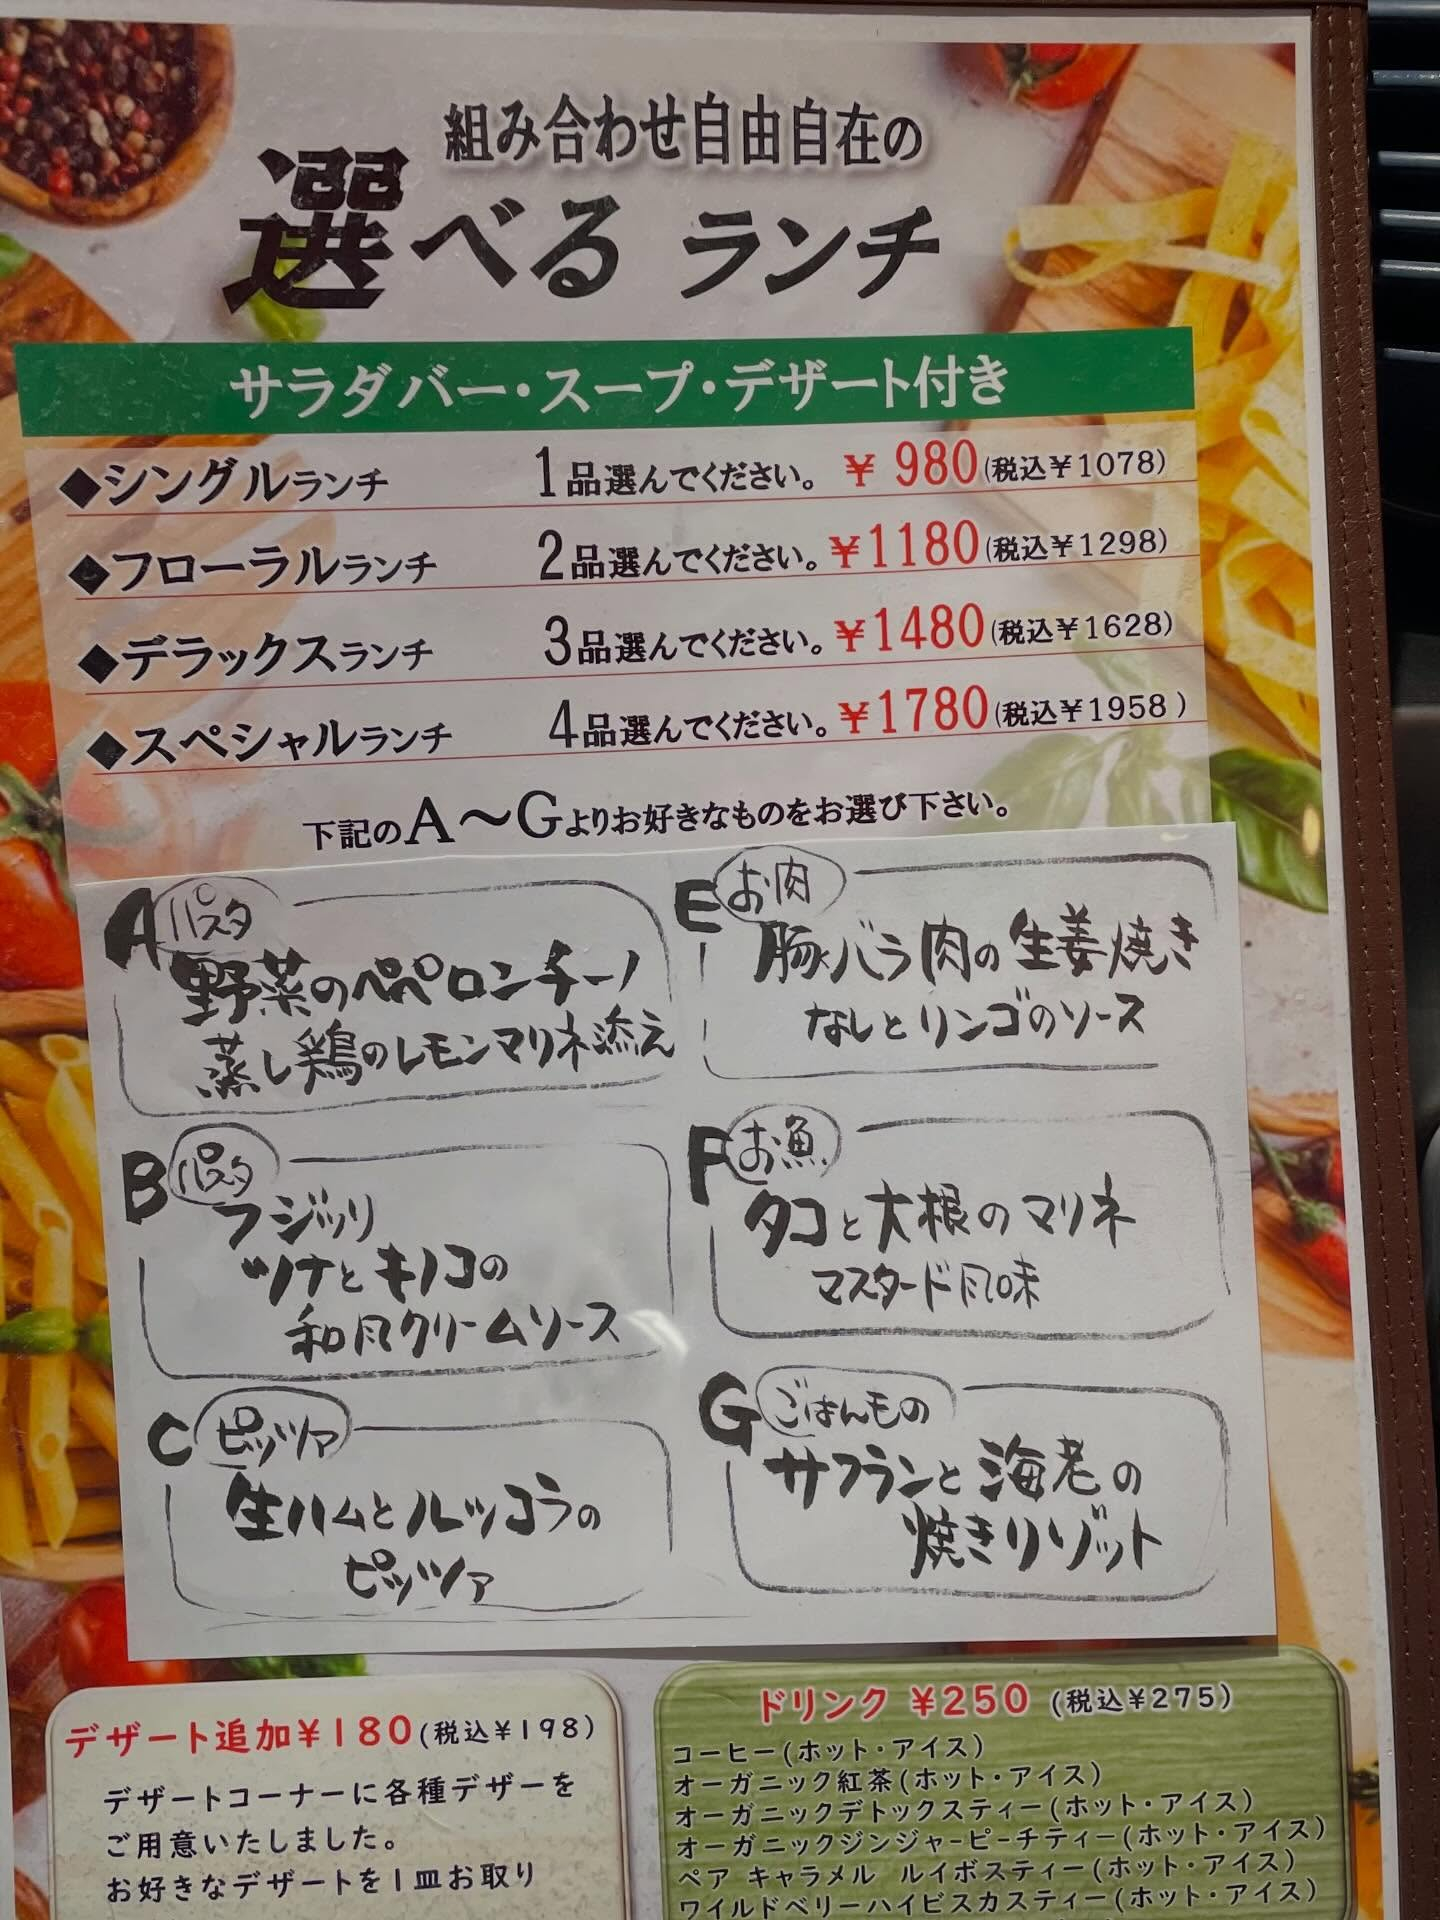 組み合わせ自由自在の
選べるランチ
サラダバー・スープ・デザート付き
◆シングルランチ 1品選んでください。 ¥980(税込¥1078)
◆フローラルランチ 2品選んでください。¥1180(税込¥1298)
◆デラックスランチ 3品選んでください。¥1480(税込¥1628)
◆スペシャルランチ 4品選んでください。¥1780(税込¥1958)
下記のA～Gよりお好きなものをお選び下さい。
A パスタ
野菜のペペロンチーノ
蒸し鶏のレモンマリネ添え
B パスタ
フジッリ
ツナとキノコの
和風クリームソース
C ピッツァ
生ハムとルッコラの
ピッツァ
E お肉
豚バラ肉の生姜焼き
なしとリンゴのソース
F お魚
タコと大根のマリネ
マスタード風味
G ごはんもの
サフランと海老の
焼きリゾット
デザート追加¥180(税込¥198)
デザートコーナーに各種デザーを
ご用意いたしました。
お好きなデザートを1皿お取り
ドリンク ¥250 (税込¥275)
コーヒー(ホット・アイス)
オーガニック紅茶(ホット・アイス)
オーガニックデトックスティー(ホット・アイス)
オーガニックジンジャーピーチティー(ホット・アイス)
ペア キャラメル ルイボスティー(ホット・アイス)
ワイルドベリーハイビスカスティー(ホット・アイス)